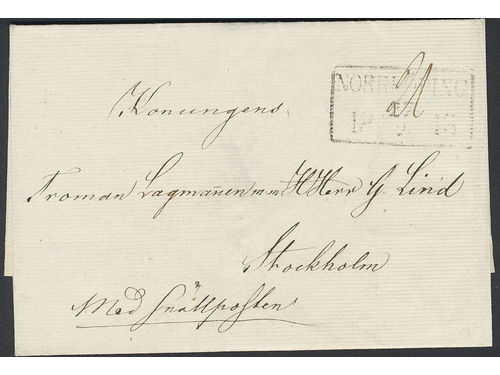 NORRKÖPING
Konungens
Troman Lagmannen m m H Herr G. Lind
Stockholm
Med Snällposten